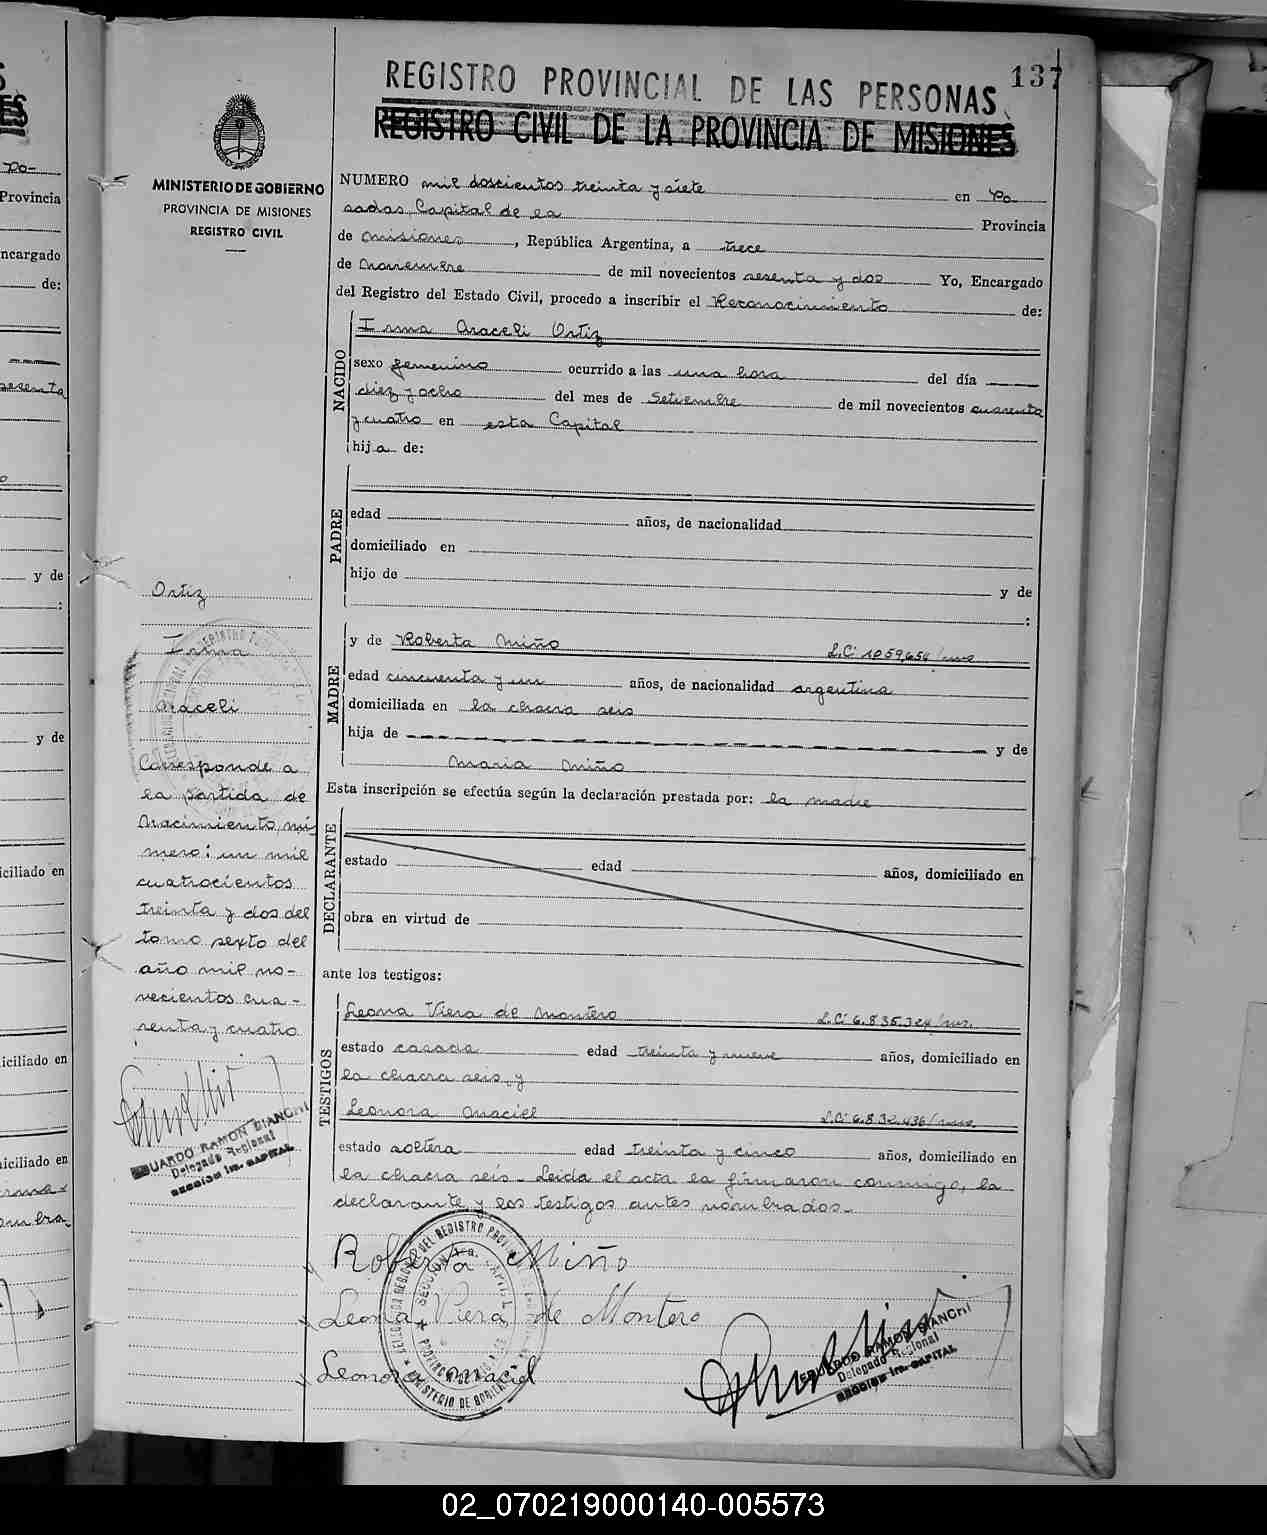 REGISTRO PROVINCIAL DE LAS PERSONAS
137
REGISTRO CIVIL DE LA PROVINCIA DE MISIONES
MINISTERIO DE GOBIERNO
PROVINCIA DE MISIONES
REGISTRO CIVIL
NUMERO mil doscientos treinta y siete en Po-
sadas, Capital de la Provincia
de Misiones, República Argentina, a trece
de Noviembre de mil novecientos sesenta y dos Yo, Encargado
del Registro del Estado Civil, procedo a inscribir el Reconocimiento de:
NACIDO
Irma Araceli Ortiz
sexo femenino ocurrido a las una hora del día
diez y ocho del mes de Setiembre de mil novecientos cuarenta
y cuatro en esta Capital
hija de:
PADRE
edad años, de nacionalidad
domiciliado en
hijo de y de
:
MADRE
y de Roberta Miño L.C. 1.059.654/
edad cincuenta y un años, de nacionalidad argentina
domiciliada en la chacra seis
hija de y de
Maria Miño
Esta inscripción se efectúa según la declaración prestada por: la madre
DECLARANTE
estado edad años, domiciliado en
obra en virtud de
ante los testigos:
TESTIGOS
Leona Viera de Montero L.C. 6.835.324/
estado casada edad treinta y nueve años, domiciliado en
la chacra seis, y
Leonora Maciel L.C. 6.832.436/
estado soltera edad treinta y cinco años, domiciliado en
la chacra seis. Leida el acta la firmaron conmigo, la
declarante y los testigos antes nombrados.-
Roberta Miño
Leona Viera de Montero
Leonora Maciel
EDUARDO RAMON BIANCHI
Delegado Regional
SECCION 1ra. CAPITAL
Ortiz
Irma
Araceli
Corresponde a
la partida de
Nacimiento nú-
mero: un mil
cuatrocientos
treinta y dos del
tomo sexto del
año mil no-
vecientos cua-
renta y cuatro
EDUARDO RAMON BIANCHI
Delegado Regional
SECCION 1ra. CAPITAL
Po-
Provincia
Encargado
de:
sesenta
y de
:
y de
iciliado en
iciliado en
iciliado en
02_070219000140-005573